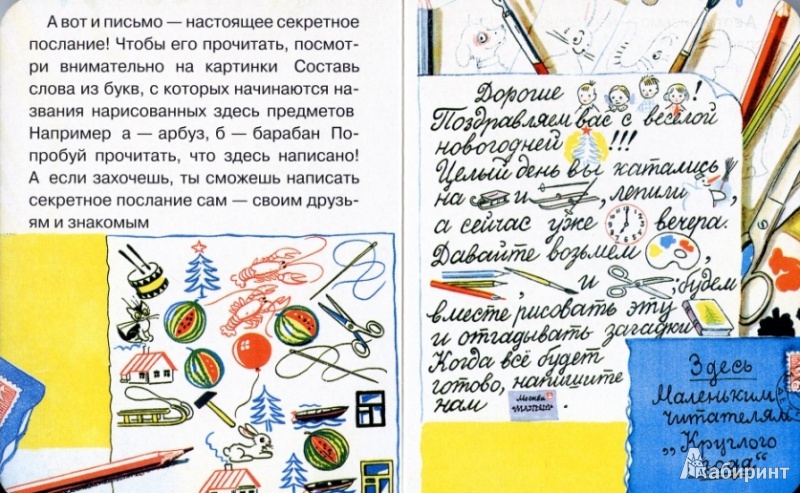 А вот и письмо — настоящее секретное
послание! Чтобы его прочитать, посмот-
ри внимательно на картинки Составь
слова из букв, с которых начинаются на-
звания нарисованных здесь предметов
Например а — арбуз, б — барабан По-
пробуй прочитать, что здесь написано!
А если захочешь, ты сможешь написать
секретное послание сам — своим друзь-
ям и знакомым
Дорогие !
Поздравляем вас с весёлой
новогодней !!!
Целый день вы катались
на и , лепили ,
а сейчас уже вечера.
Давайте возьмем ,
, и ; будем
вместе рисовать эту
и отгадывать загадки
Когда всё будет
готово, напишите
нам Москва .
Здесь
Маленьким
читателям
„Круглого
года“
Лабиринт